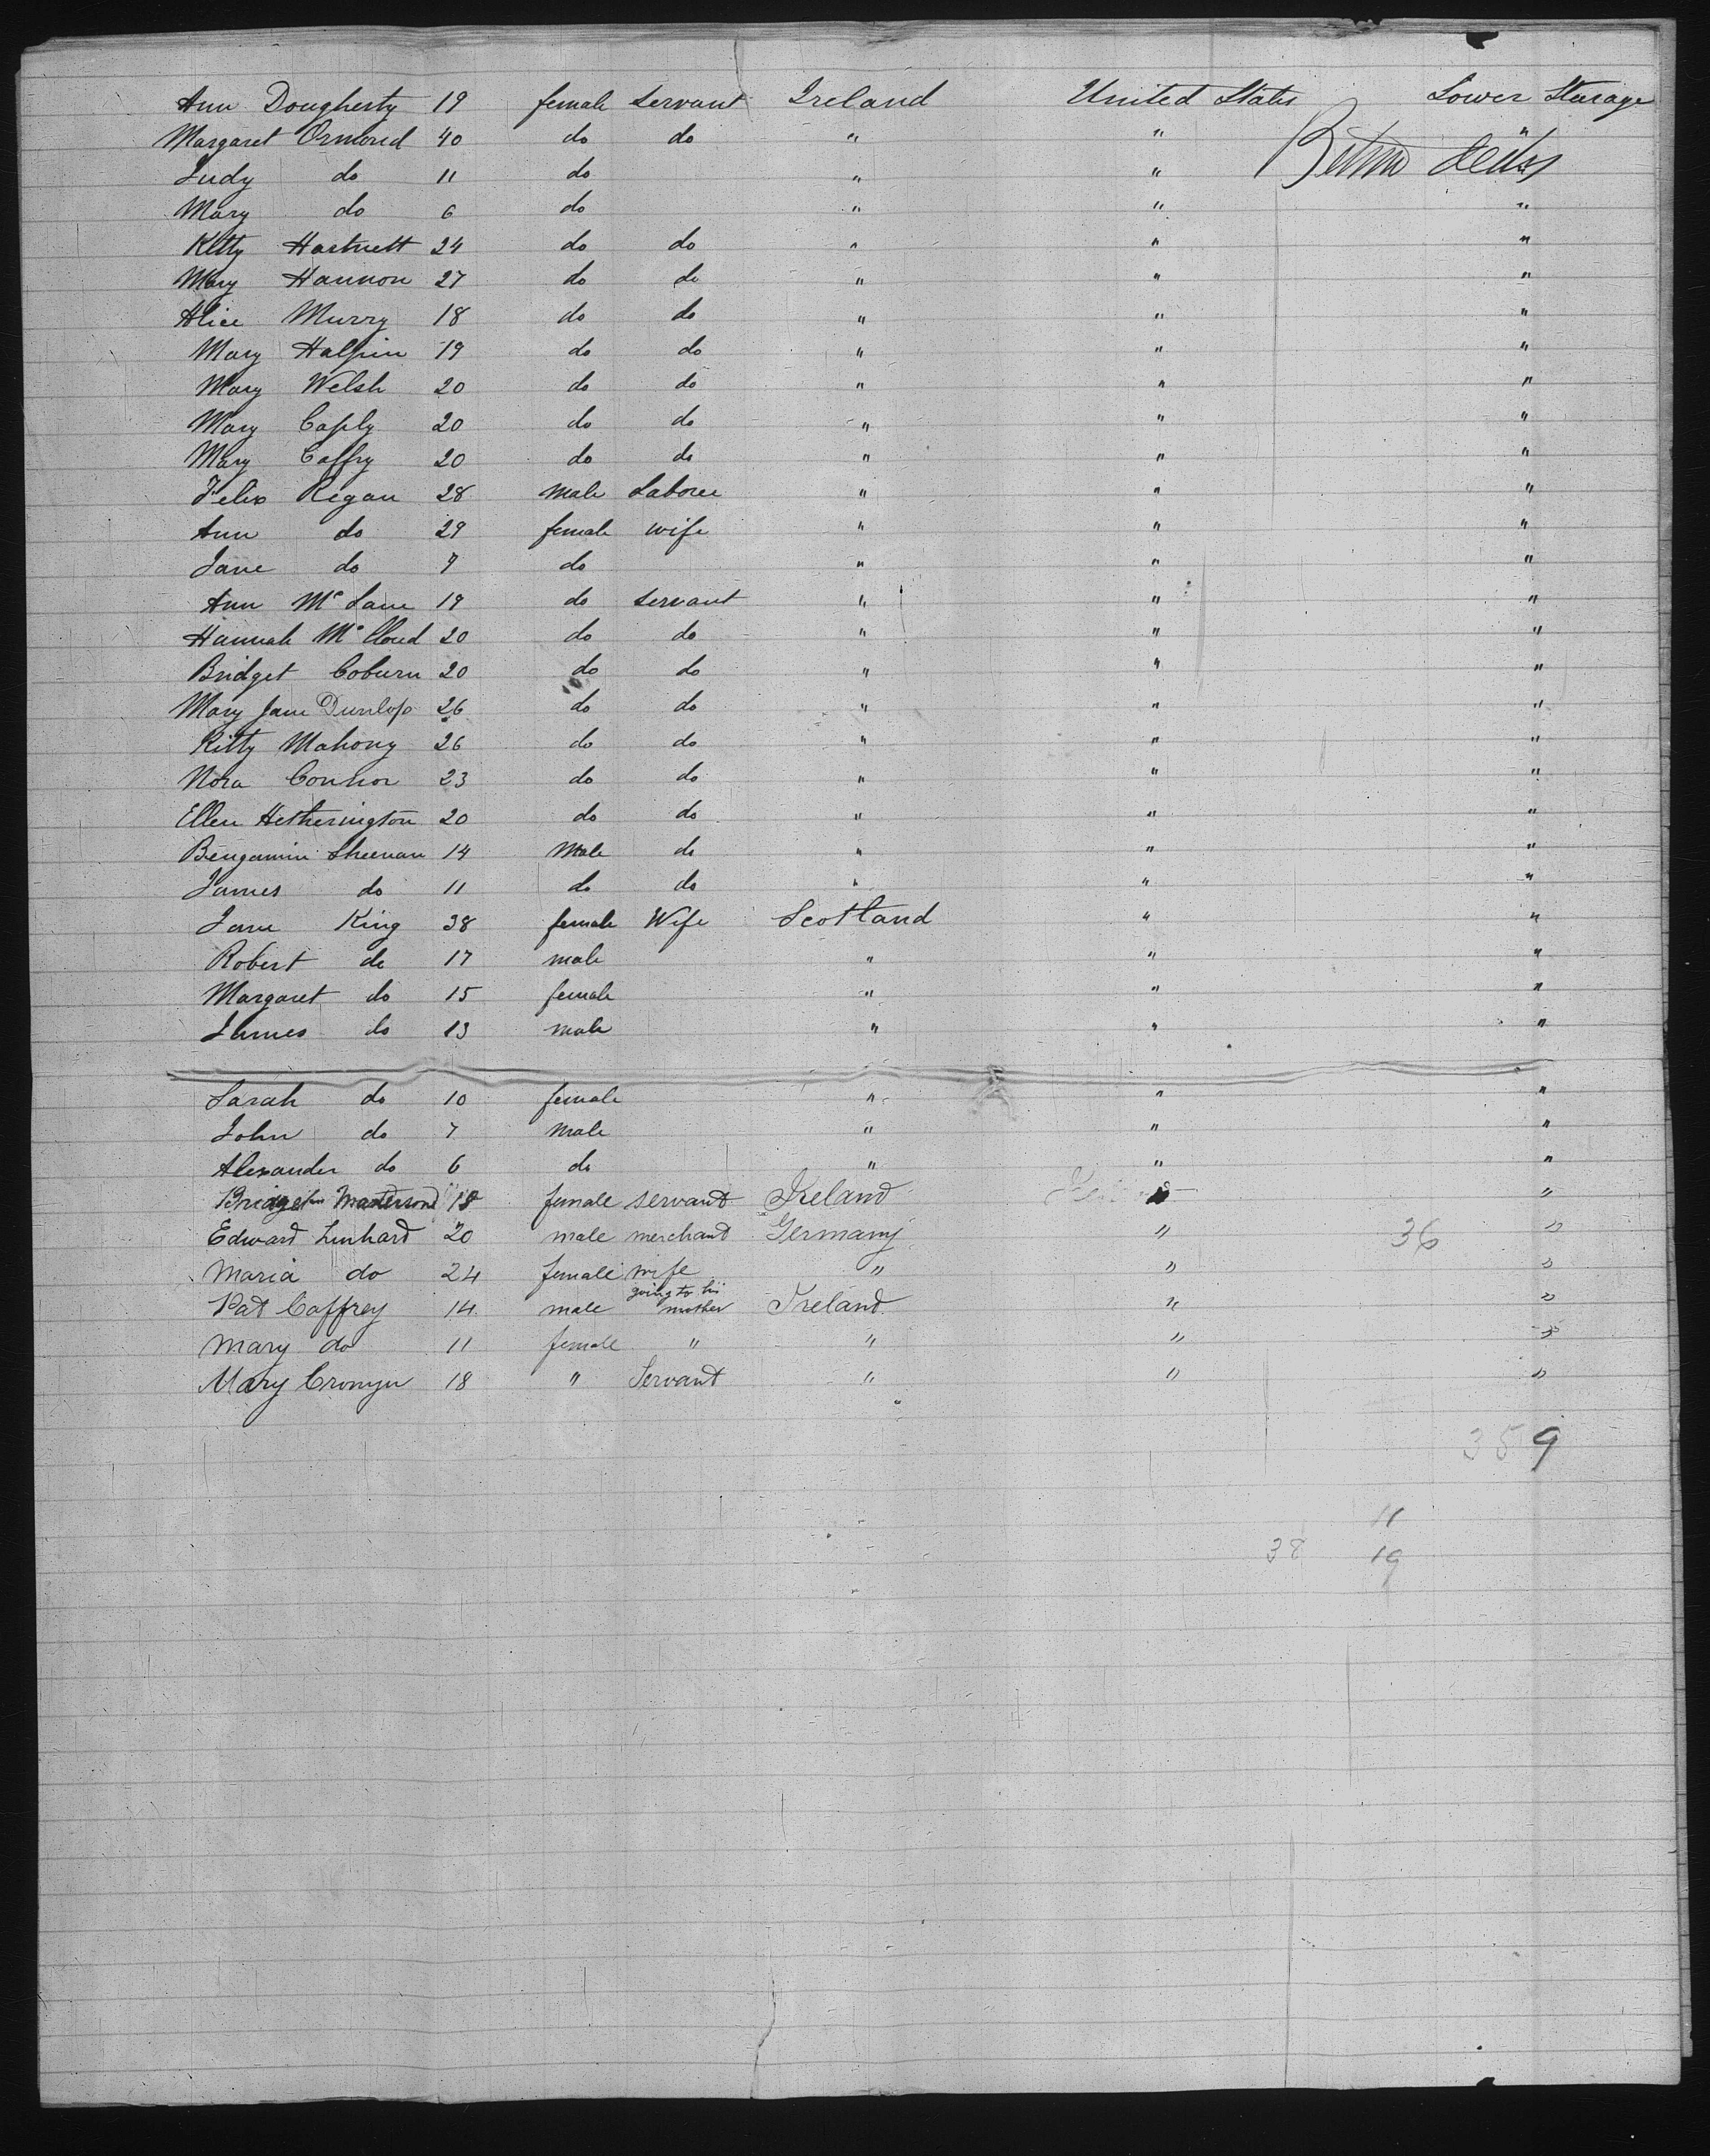 Ann Dougherty 19 female servant Ireland United States Lower Starage
Margaret Ormond 40 do do " " "
Judy do 11 do " " "
Mary do 6 do " " "
Kitty Hartnett 24 do do " " "
Mary Hannon 27 do do " " "
Alice Murry 18 do do " " "
Mary Halpin 19 do do " " "
Mary Welsh 20 do do " " "
Mary Caply 20 do do " " "
Mary Caffry 20 do do " " "
Felix Regan 28 male Laborer " " "
Ann do 29 female wife " " "
Jane do 7 do " " "
Ann Mc Lane 19 do servant " " "
Hannah Mc Cloud 20 do do " " "
Bridget Coburn 20 do do " " "
Mary Jane Dunlop 26 do do " " "
Kitty Mahony 26 do do " " "
Nora Connor 23 do do " " "
Ellen Hetherington 20 do do " " "
Bengamin Sheenan 14 Male do " " "
James do 11 do do " " "
Jane King 38 female Wife Scotland " "
Robert do 17 male " " "
Margaret do 15 female " " "
James do 13 male " " "
Sarah do 10 female " " "
John do 7 male " " "
Alexander do 6 do " " "
Bridget Masterson 18 female servant Ireland " "
Edward Linhard 20 male merchant Germany " 36 "
Maria do 24 female wife " " "
Pat Caffrey 14 male going to his mother Ireland " "
Mary do 11 female " " " "
Mary Cronyn 18 " Servant " " "
359
11
38 19